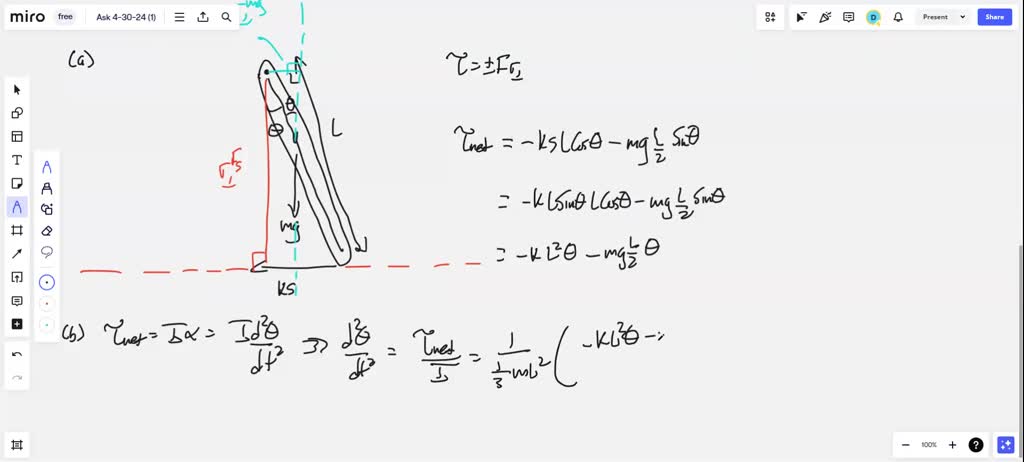 miro free Ask 4-30-24 (1) Present Share
-mg
(a)
τ = ±Fr⊥
L
θ
θ
L
τnet = -kSLcosθ - mg L/2 sinθ
r⊥Fs
= -kLsinθLcosθ - mg L/2 sinθ
mg
= -kL²θ - mg L/2 θ
kS
(b) τnet = Iα = I d²θ/dt² ⇒ d²θ/dt² = τnet/I = 1/(1/3 mL²) ( -kL²θ -
100%